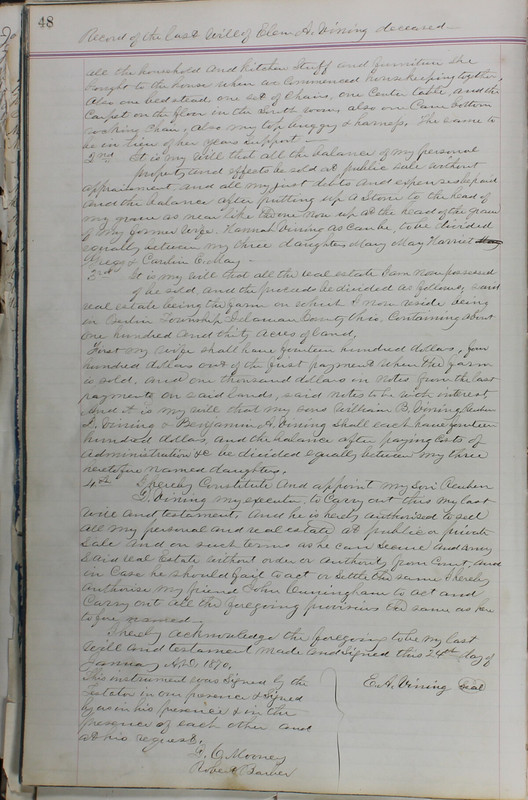 48
Record of the Last Will of Elam A. Vining deceased
all the household and kitchen stuff and furniture she
brought to the house when we commenced housekeeping together,
Also one bedstead one set of chairs, one center table, and the
carpet on the floor in the south room, also one Cane bottom
rocking chair, also my top buggy & harness, The same to
be in lieu of her years support —
2nd It is my will that all the balance of my personal
property and effects be sold at public sale without
appraisment and all my just debts and expenses be paid
And the balance after putting up a stone to the head of
my grave as near like the one now up at the head of the grave
of my former wife. Hannah Vining as can be, to be divided
equally between my three daughters Mary May Harriet
Gregg & Carlin E. May —
3rd It is my will that all the real estate I am now possessed
of be sold, and the proceeds be divided as follows, said
real estate being the farm on which I now reside being
in Berlin Township Delaware County Ohio. Containing about
One hundred and thirty acres of land.
First my wife shall have fourteen hundred dollars, four
hundred dollars out of the first payment when the farm
is sold, and one thousand dollars in notes from the last
payments on said lands, said notes to be with interest
And it is my will that my sons William B. Vining Reuben
D. Vining & Benjamin A. Vining shall each have fourteen
hundred dollars, and the balance after paying costs of
administration &c be divided equally between my three
heretofore named daughters.
4th I hereby Constitute and appoint my Son Reuben
D. Vining my executor, to Carry out this my last
will and testament, and he is hereby authorised to sell
all my personal and real estate at public or private
Sale and on such terms as he can secure and
said real Estate without order or authority from Court, and
in Case he should fail to act or settle the same I hereby
authorise my friend John Cunningham to act and
Carry out all the foregoing provisions the same as here
tofore named.
I hereby acknowledge the foregoing to be my last
will and testament made and signed this 24th day of
January A.D. 1870.
This instrument was Signed by the
Testator in our presence & signed
by us in his presence & in the
presence of each other and
at his request.
E. A. Vining Seal
G. C. Mooney
Robert Barber